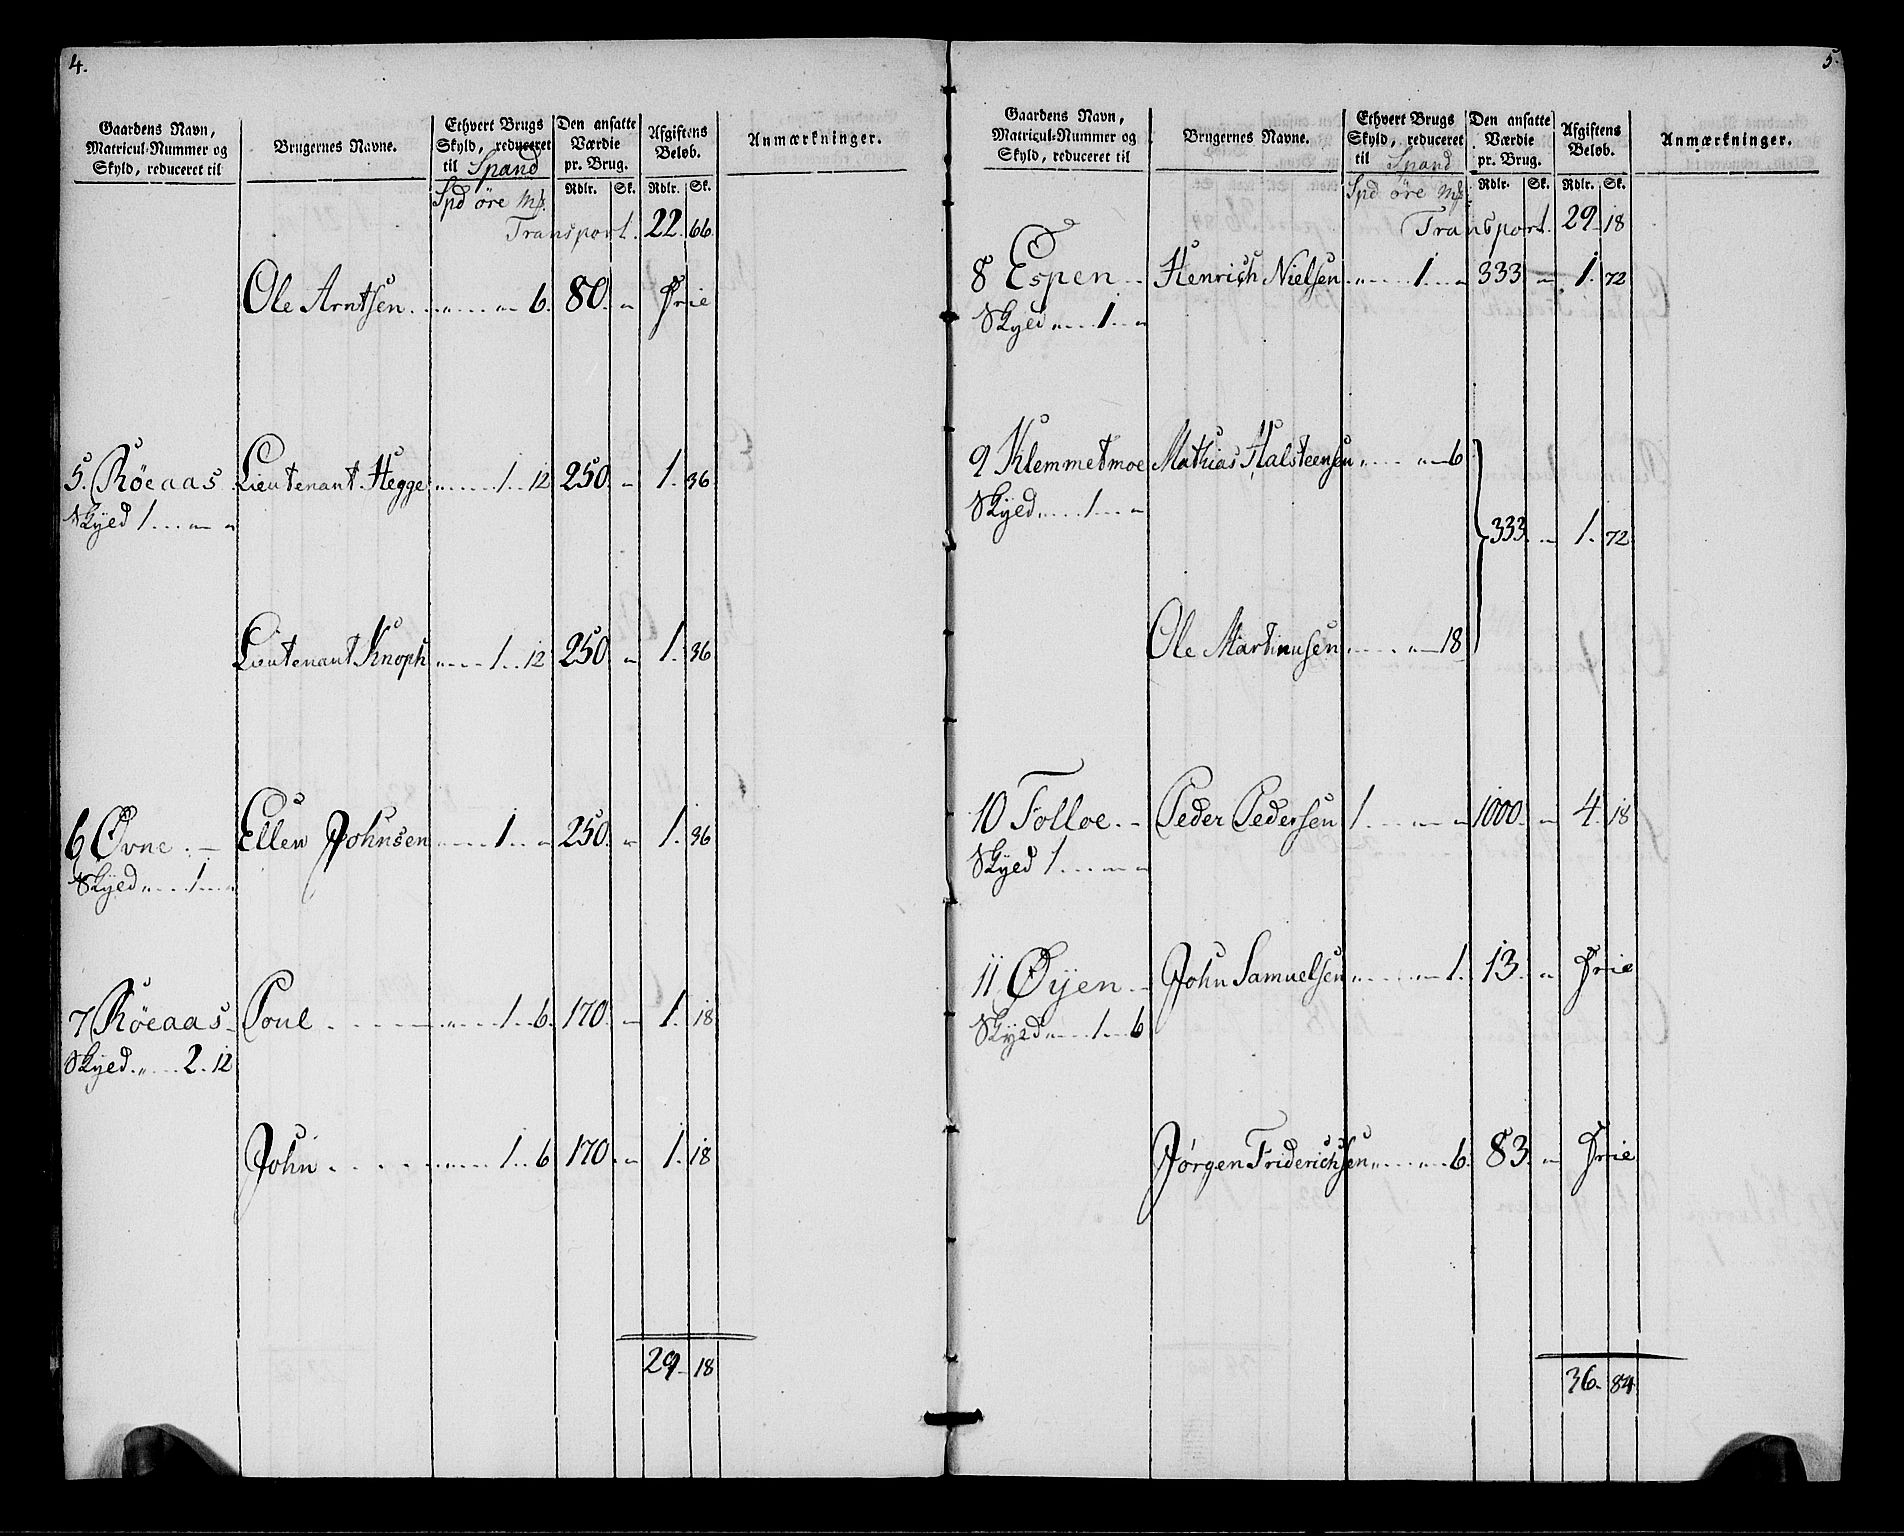 4.
Gaardens Navn, Matricul-Nummer og Skyld, reduceret til
Brugernes Navne.
Ethvert Brugs Skyld, reduceret til Spand
Den ansatte Værdie pr. Brug.
Afgiftens Beløb.
Anmærkninger.
Spd öre Mk. Rdlr. Sk. Rdlr. Sk.
Transport. 22. 66.
Ole Arntsen. . . „ . . . „ 6. 80. „ Frie
5. Röeaas Lieutenant Hegge „ . . . 1 . . 12 250. „ 1. 36
Skyed 1 . . . „ „
Lieutenant Knoph „ . . . 1 . . 12 250 „ 1. 36
6 Øvne . — Ellen Johnsen „ . . . 1 . . „ 250. „ 1. 36
Skyed „ . . . 1 . . . „
7 Röeaas Poul . . . . „ . . . 1 . . 6. 170. „ 1. 18
Skyed. „ . . . 2. 12
John . . . . . „ . . . 1 . . 6 170. „ 1. 18
29. 18
5.
Gaardens Navn, Matricul-Nummer og Skyld, reduceret til
Brugernes Navne.
Ethvert Brugs Skyld, reduceret til Spand
Den ansatte Værdie pr. Brug.
Afgiftens Beløb.
Anmærkninger.
Spd öre Mk. Rdlr. Sk. Rdlr. Sk.
Transport. 29. 18
8 Espen . . Henrich Nielsen „ . . . 1 . . . „ 333 „ 1. 72
Skyed „ . . . 1 . . „
9 Klemmetmoe Mathias Halsteensen „ . . . „ 6
Skyed „ . . . 1 . . . „
333. „ 1. 72
Ole Martinusen „ . . . „ 18
10 Tolloe. . Peder Pedersen 1 . . . „ „ 1000. „ 4. 18
Skyed 1 . . . „ „
11 Øyen . . John Samuelsen „ . . . „ 1. 13. „ Frie
Skyed „ . . . 1 . . 6
Jørgen Friderichsen „ . . . „ 6. 83. „ Frie
36. 84